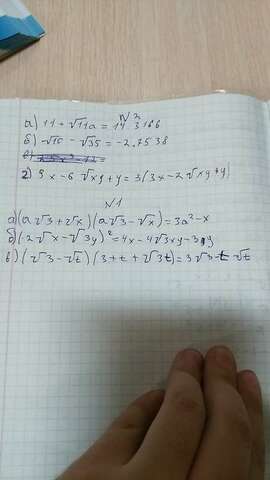 №2
а) 11 + √11a = 14 3166
б) √15 - √35 = -2.7538
г) 9x - 6√xy + y = 3(3x - 2√xy + y)
№1
а) (a√3 + √x)(a√3 - √x) = 3a² - x
б) (2√x - √3y)² = 4x - 4√3xy - 3y
в) (√3 - √t)(3 + t + √3t) = 3√3 - t√t